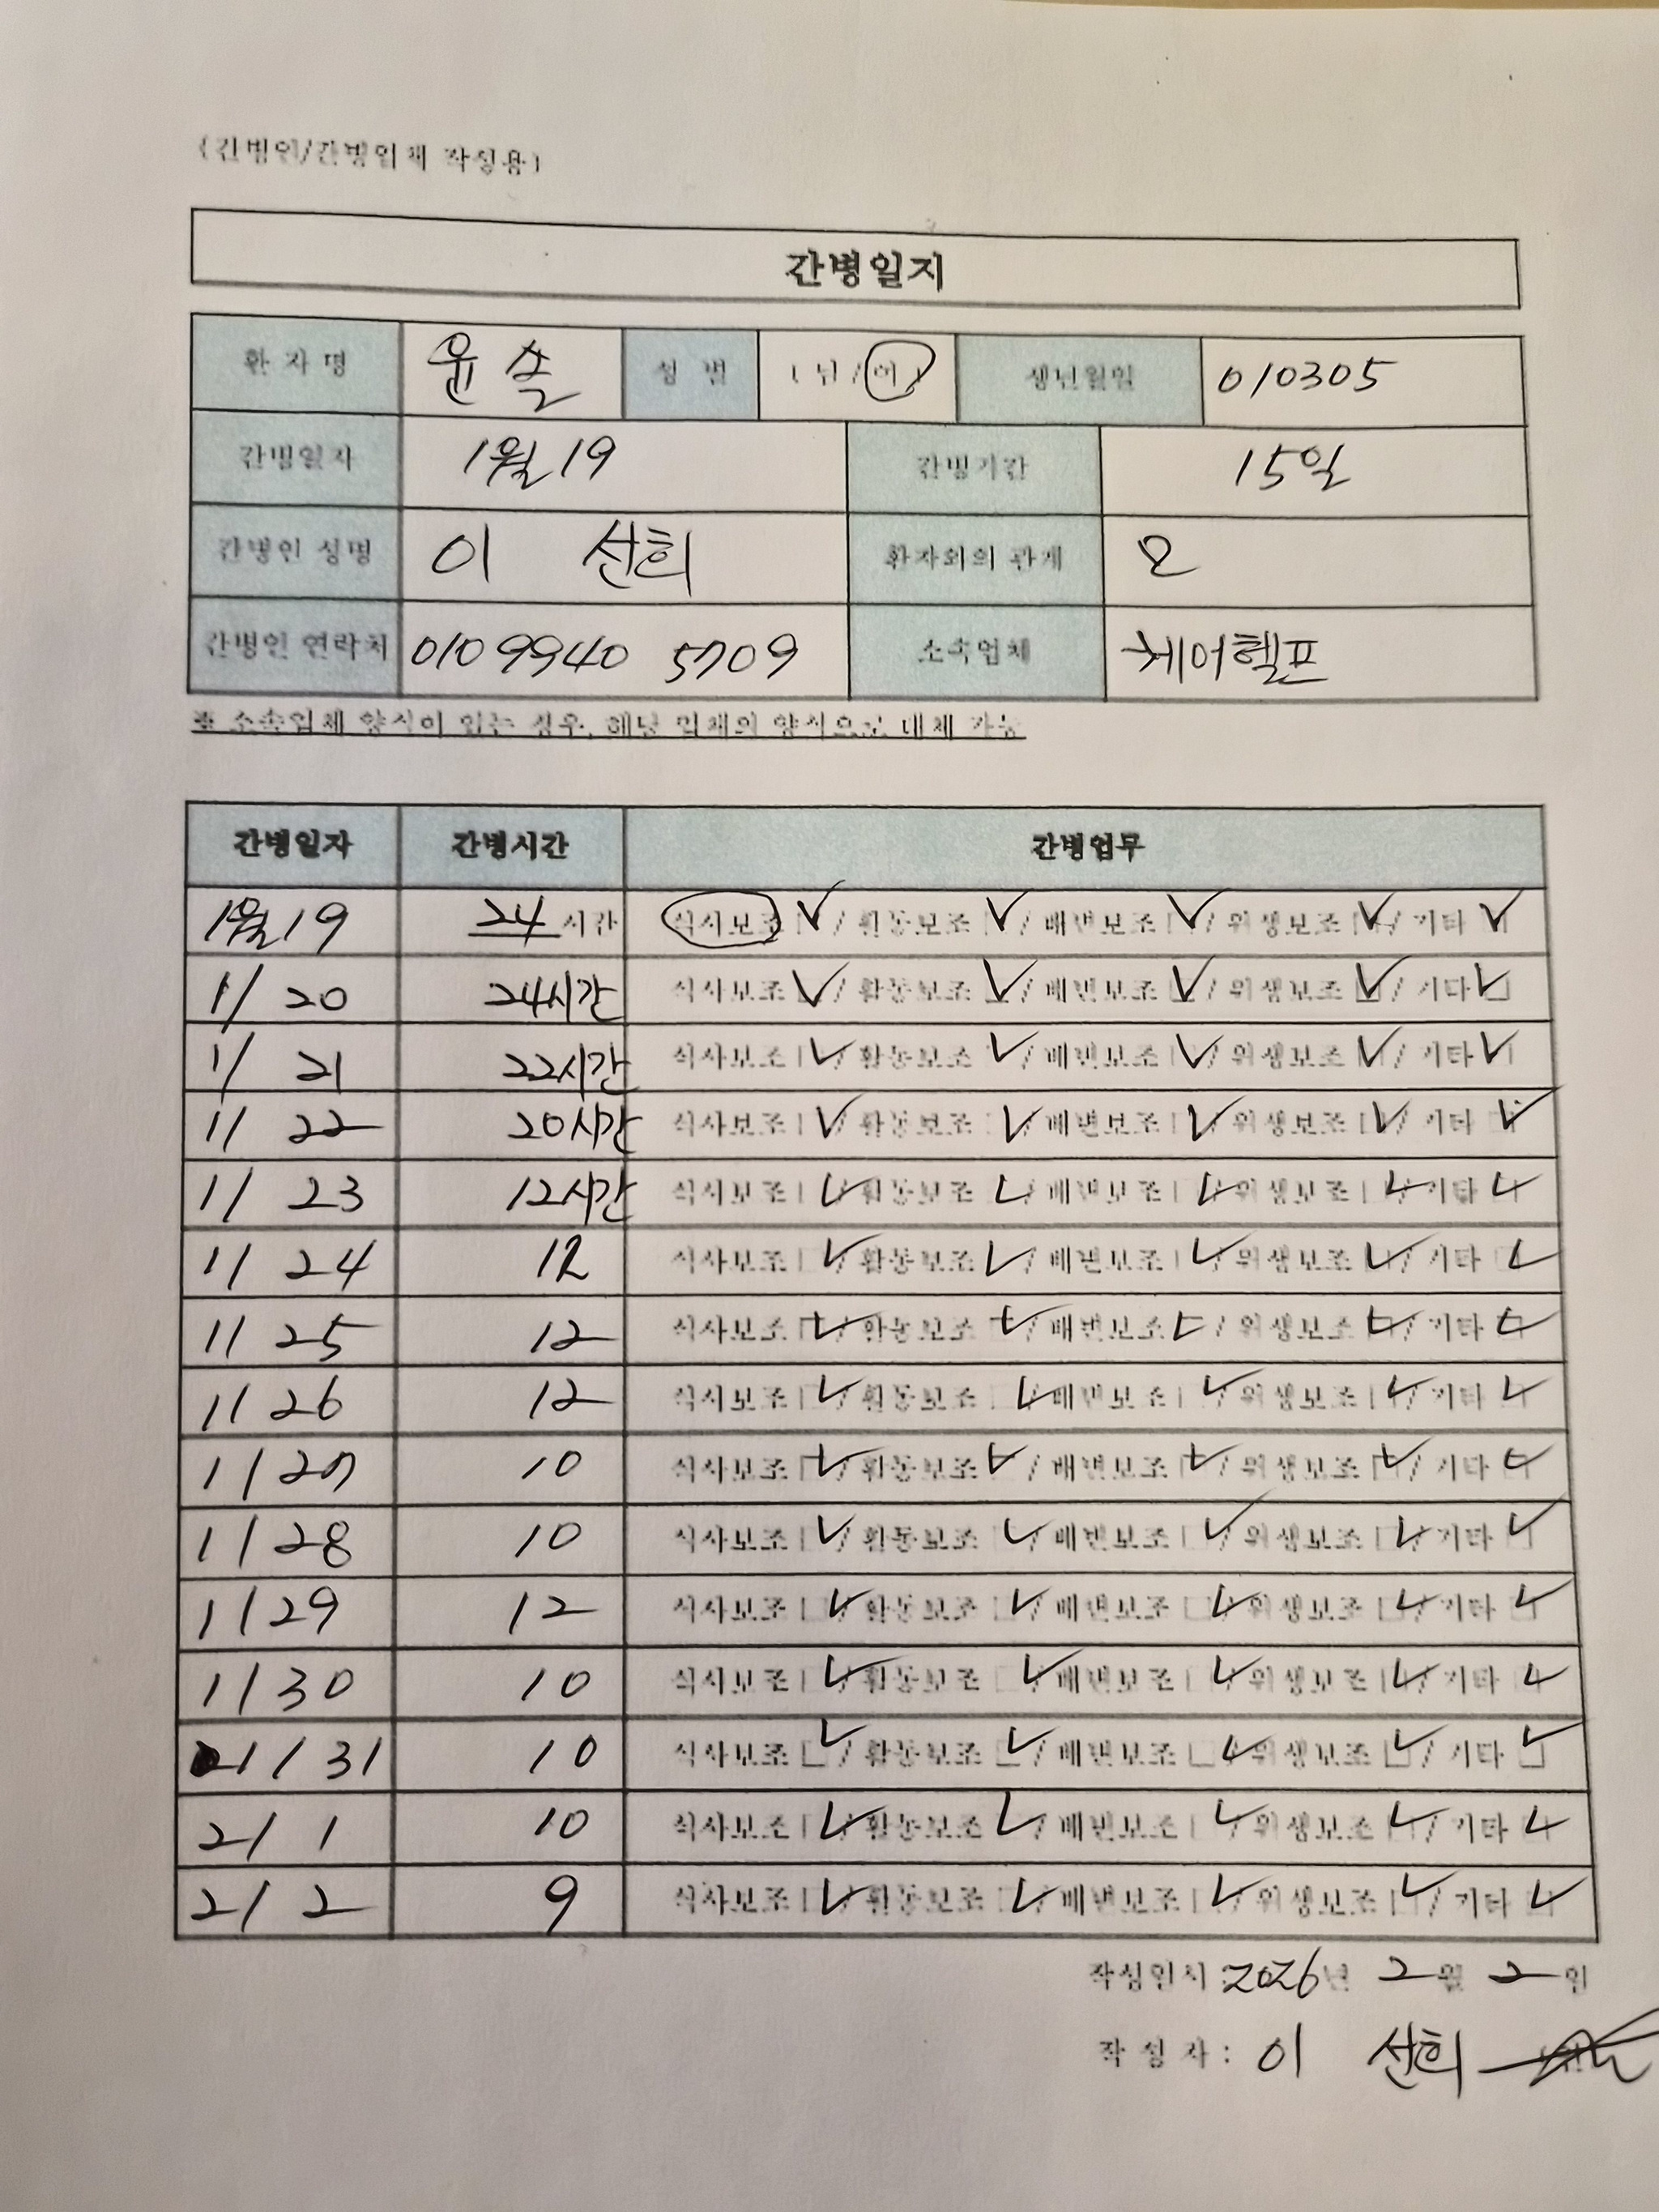 (간병인/간병업체 작성용)
간병일지
환자명 윤솔 성별 (남/여) 생년월일 010305
간병일자 1월 19 간병기간 15일
간병인 성명 이 선희 환자와의 관계 모
간병인 연락처 010 9940 5709 소속업체 케어헬프
※ 소속업체 양식이 있는 경우, 해당 업체의 양식으로 대체 가능
간병일자 간병시간 간병업무
1월 19 24 시간 식사보조 ☑ / 활동보조 ☑ / 배변보조 ☑ / 위생보조 ☑ / 기타 ☑
1/ 20 24시간 식사보조 ☑ / 활동보조 ☑ / 배변보조 ☑ / 위생보조 ☑ / 기타 ☑
1/ 21 22시간 식사보조 ☑ / 활동보조 ☑ / 배변보조 ☑ / 위생보조 ☑ / 기타 ☑
1/ 22 20시간 식사보조 ☑ / 활동보조 ☑ / 배변보조 ☑ / 위생보조 ☑ / 기타 ☑
1/ 23 12시간 식사보조 ☑ / 활동보조 ☑ / 배변보조 ☑ / 위생보조 ☑ / 기타 ☑
1/ 24 12 식사보조 ☑ / 활동보조 ☑ / 배변보조 ☑ / 위생보조 ☑ / 기타 ☑
1/ 25 12 식사보조 ☑ / 활동보조 ☑ / 배변보조 ☑ / 위생보조 ☑ / 기타 ☑
1/ 26 12 식사보조 ☑ / 활동보조 ☑ / 배변보조 ☑ / 위생보조 ☑ / 기타 ☑
1/ 27 10 식사보조 ☑ / 활동보조 ☑ / 배변보조 ☑ / 위생보조 ☑ / 기타 ☑
1/ 28 10 식사보조 ☑ / 활동보조 ☑ / 배변보조 ☑ / 위생보조 ☑ / 기타 ☑
1/ 29 12 식사보조 ☑ / 활동보조 ☑ / 배변보조 ☑ / 위생보조 ☑ / 기타 ☑
1/ 30 10 식사보조 ☑ / 활동보조 ☑ / 배변보조 ☑ / 위생보조 ☑ / 기타 ☑
1/ 31 10 식사보조 ☑ / 활동보조 ☑ / 배변보조 ☑ / 위생보조 ☑ / 기타 ☑
2/ 1 10 식사보조 ☑ / 활동보조 ☑ / 배변보조 ☑ / 위생보조 ☑ / 기타 ☑
2/ 2 9 식사보조 ☑ / 활동보조 ☑ / 배변보조 ☑ / 위생보조 ☑ / 기타 ☑
작성일시 : 2026년 2월 2일
작성자 : 이 선희